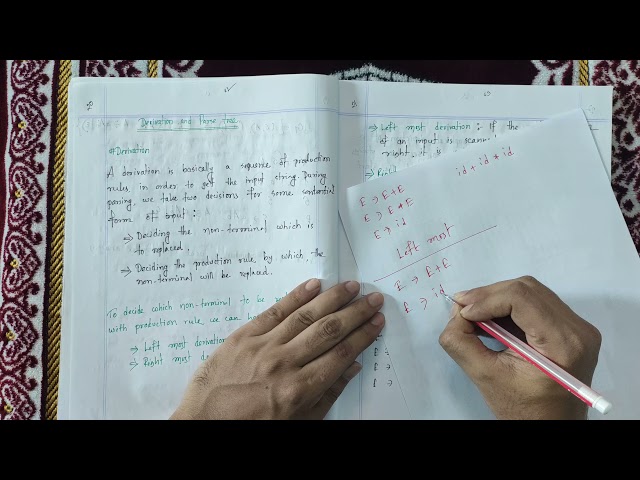 Derivation and Parse Tree
# Derivation
A derivation is basically a sequence of production
rules, in order to get the input string. During
parsing, we take two decisions for some sentential
form of input :
⇒ Deciding the non-terminal which is
to replaced.
⇒ Deciding the production rule, by which, the
non-terminal will be replaced.
To decide which non-terminal to be
with production rule, we can
⇒ Left most derivation
⇒ Right most
⇒ Left most derivation :- If the
of an input is
right, it is
E → E+E
E → E*E
E → id
id + id * id
Left most
E → E+E
E → id